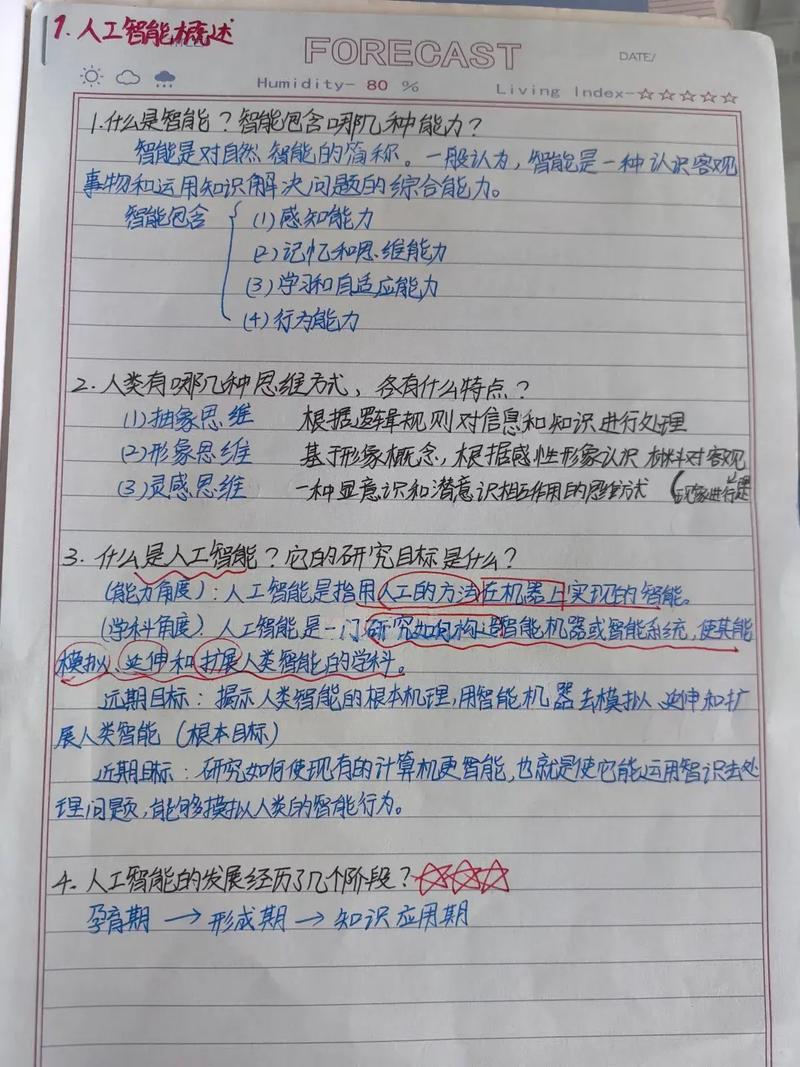 1. 人工智能概述
FORECAST
DATE/
Humidity- 80 %
Living Index-☆☆☆☆☆
1.什么是智能？智能包含哪几种能力？
智能是对自然智能的简称。一般认为，智能是一种认识客观
事物和运用知识解决问题的综合能力。
智能包含
(1)感知能力
(2)记忆和思维能力
(3)学习和自适应能力
(4)行为能力
2.人类有哪几种思维方式，各有什么特点？
(1)抽象思维 根据逻辑规则对信息和知识进行处理
(2)形象思维 基于形象概念，根据感性形象认识材料对客观
(3)灵感思维 一种显意识和潜意识相互作用的思维方式 (现象进行处理
3.什么是人工智能？它的研究目标是什么？
(能力角度)：人工智能是指用人工的方法在机器上实现的智能。
(学科角度)：人工智能是一门研究如何构造智能机器或智能系统，使其能
模拟、延伸和扩展人类智能的学科。
远期目标：揭示人类智能的根本机理，用智能机器去模拟、延伸和扩
展人类智能 (根本目标)
近期目标：研究如何使现有的计算机更智能，也就是使它能运用智识去处
理问题，能够模拟人类的智能行为。
4.人工智能的发展经历了几个阶段？☆☆☆
孕育期 → 形成期 → 知识应用期